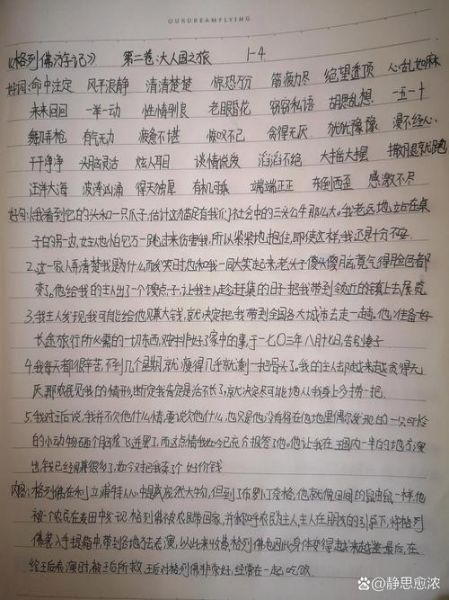 OURDREAMFLYING
《格列佛游记》 第二卷:大人国之旅 1-4
好词:命中注定 风平浪静 清清楚楚 惊恐万分 筋疲力尽 绝望透顶 心乱如麻
来来回回 一举一动 性情别良 老眼昏花 窃窃私语 胡思乱想 一五一十
舞刀弄枪 有气无力 疲惫不堪 惊叹不已 贪得无厌 犹犹豫豫 漫不经心
干干净净 头脑灵活 炫人耳目 谈情说爱 滔滔不绝 大摇大摆 撒腿就跑
汪洋大海 波涛汹涌 得天独厚 有机可乘 端端正正 东倒西歪 感激不尽
好句:1.我看到它的头和一只爪子,估计这猫足有我们社会中的三头公牛那么大。我老远地站在桌
子的另一边,女主人也怕它万一跳过来伤害我,所以紧紧地抱住,即使这样,我还是十分不安。
2.这一家人弄清楚我是为什么而发笑时,也和我一同大笑起来,老头子傻头傻脑,竟气得脸色都
变了。他给我的主人出了个馊点子,让我主人趁赶集的日子把我带到邻近的镇上去展览
3.我主人发现我可能给他赚大钱,就决定把我带到全国各大城市去走一趟。他准备好
长途旅行所必需的一切东西,又安排好了家中的事,于一七〇三年八月十七日,告别妻子
4.我每天都很辛苦,不到几个星期,就瘦得几乎就剩一把骨头了。我的主人却越来越贪得无
厌,那农民见我的情形,断定我肯定是活不长了,就决定尽可能地从我身上多捞一把。
5.我对王后说,我并不欠他什么情,要说欠他什么,也只是他没有将在他地里偶尔发现的一只可怜
的小动物砸个脑袋飞迸罢了,而这点情我如今已充分报答了他。他让我在王国内一半的地方演
出,钱已经赚很多了,如今又把我卖了个好价钱
内容:格列佛在利立浦特人心中是武发然大物,但到了布罗丁奈格,他就像田间的鼠由鼠一样,他
被一个农民在麦田中发现,格列佛被农民带回家,并称呼农民为主人,主人在朋友的引导下,将格列
佛装入手提箱中,带到各地去表演,以此来收费,格列佛也因此身体变得越来越差,最后,在
给王后表演时,被王后所救,王后对格列佛非常好,经常在一起吃饭
@静思愈浓